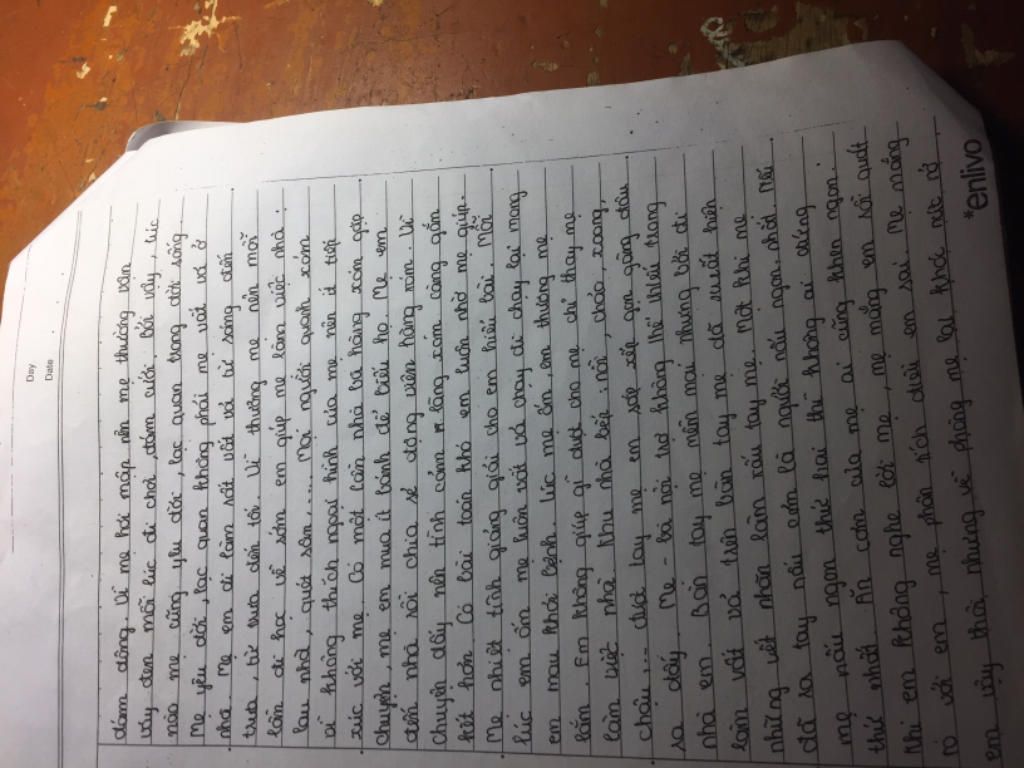 Day
Date
đám đông. Vì mẹ hơi mập nên mẹ thường vận
váy đen mỗi lúc đi chơi, đám cưới. Bởi vậy, lúc
nào mẹ cũng yêu đời, lạc quan trong đời sống
Mẹ yêu đời, lạc quan không phải mẹ với vơ ở
nhà. Mẹ em đi làm rất vất vả từ sáng đến
trưa, từ trưa đến tối. Vì thương mẹ nên mỗi
lần đi học về sớm em giúp mẹ làm việc nhà:
lau nhà, quét sân...... Mọi người quanh xóm
không thích ngoại hình của mẹ nên ít tiếp
xúc với mẹ. Có một lần nhà bà hàng xóm gặp
chuyện, mẹ em mua ít bánh để biếu họ. Mẹ em
đến nhà rồi chia sẻ động viên hàng xóm. Vì
chuyện đấy nên tình cảm làng xóm càng gắn
kết hơn. Có bài toán khó em luôn nhờ mẹ giúp.
Mẹ nhiệt tình giảng giải cho em hiểu bài. Mỗi
lúc em ốm mẹ luôn vất vả chạy đi chạy lại mong
em mau khỏi bệnh. Lúc mẹ ốm, em thương mẹ
lắm. Em không giúp gì được cho mẹ chỉ thay mẹ
làm việc nhà. Khu nhà bếp nồi, chảo, xoong,
chậu... được tay mẹ em sắp xếp gọn gàng đâu
ra đấy. Mẹ - bà nội trợ không thể thiếu trong
nhà em. Bàn tay mẹ mềm mại nhưng bởi đi
làm vất vả trên bàn tay mẹ đã xuất hiện
những vết nhăn làn tay mẹ. Một khi mẹ
đã ra tay nấu cơm là người nấu ngon nhất. Nếu
mẹ nấu ngon thứ hai thì không ai đứng
thứ nhất. Ăn cơm của mẹ ai cũng khen ngon.
Khi em không nghe lời mẹ, mẹ mắng em rồi quát
rõ với em, mẹ phân tích điều em sai. Mẹ mắng
em vậy thôi, nhưng về phòng mẹ lại khóc nức nở
*enlivo